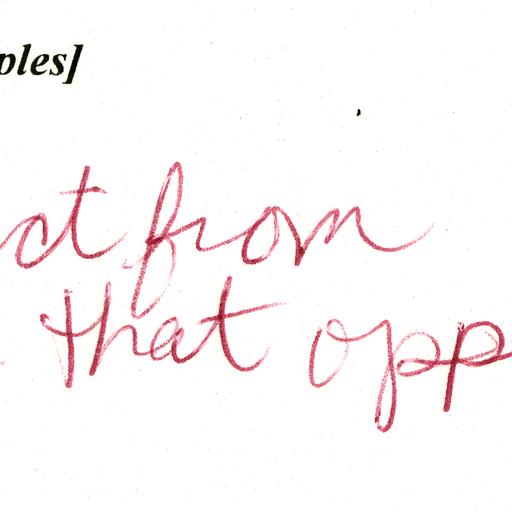 ples]
ct from
that opp